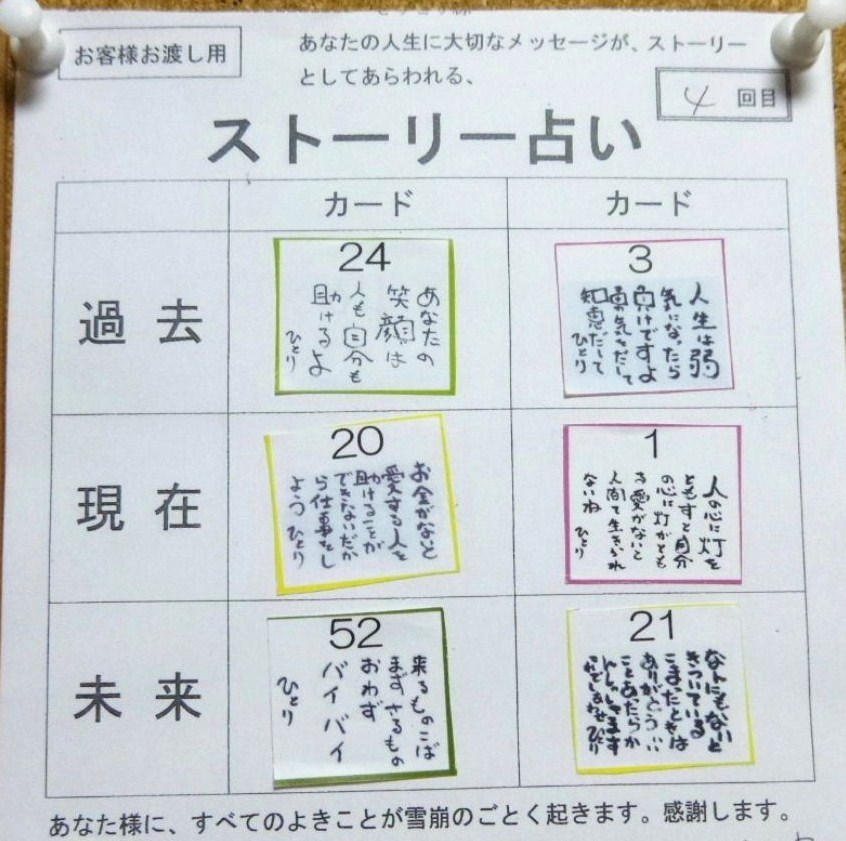 お客様お渡し用
あなたの人生に大切なメッセージが、ストーリー
としてあらわれる、
4 回目
ストーリー占い
カード
カード
過去
24
あなたの
笑顔は
人も自分も
助けるよ
ひとり
3
人生は弱
気になったら
負けですよ
勇気をだして
知恵だして
ひとり
現在
20
お金がないと
愛する人を
助けることが
できないだか
ら仕事をし
よう ひとり
1
人の心に灯を
ともすと自分
の心に灯がとも
る愛がないと
人間て生きられ
ないね ひとり
未来
52
来るものこば
まずさるもの
おわず
バイバイ
ひとり
21
なんにもないと
きついている
こまったときは
ありがとう
ひとり
あなた様に、すべてのよきことが雪崩のごとく起きます。感謝します。